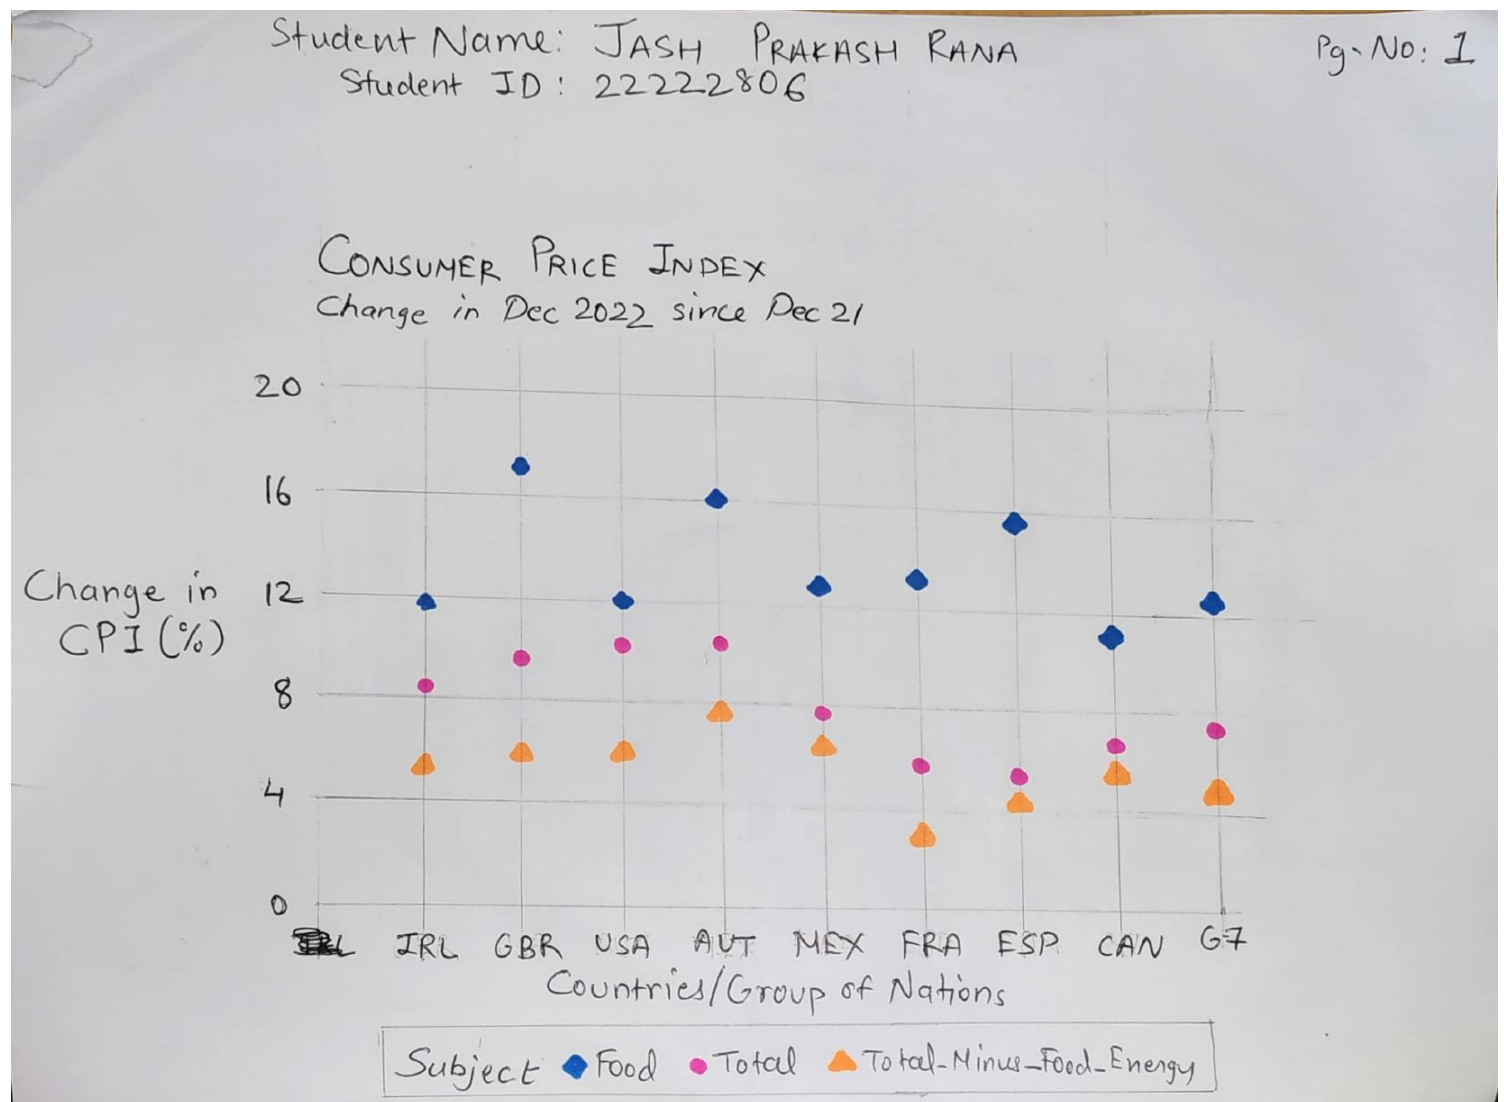 Student Name: JASH PRAKASH RANA
Pg. No: 1
Student ID: 22222806
CONSUMER PRICE INDEX
Change in Dec 2022 since Dec 21
20
16
12
8
4
0
Change in
CPI (%)
IRL GBR USA AUT MEX FRA ESP CAN G7
Countries/Group of Nations
Subject Food Total Total-Minus-Food-Energy